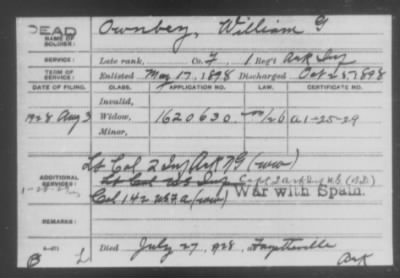 DEAD
NAME OF SOLDIER: Ownbey, William G
SERVICE: Late rank, Co. F, 1 Reg't Ark Inf
TERM OF SERVICE: Enlisted May 17, 1898 Discharged Oct 25, 1898
DATE OF FILING. CLASS. APPLICATION NO. LAW. CERTIFICATE NO.
Invalid,
1928 Aug 3 Widow, 1620630 A 1-25-29
Minor,
Lt Col 2 Inf Ark NG (WW)
ADDITIONAL SERVICES: Lt Col US Inf Capt 2 Ark Inf N.G.
1-25-29 Col 142 US F.A (WW) War with Spain.
REMARKS:
Died July 27, 1928, Fayetteville
Ark